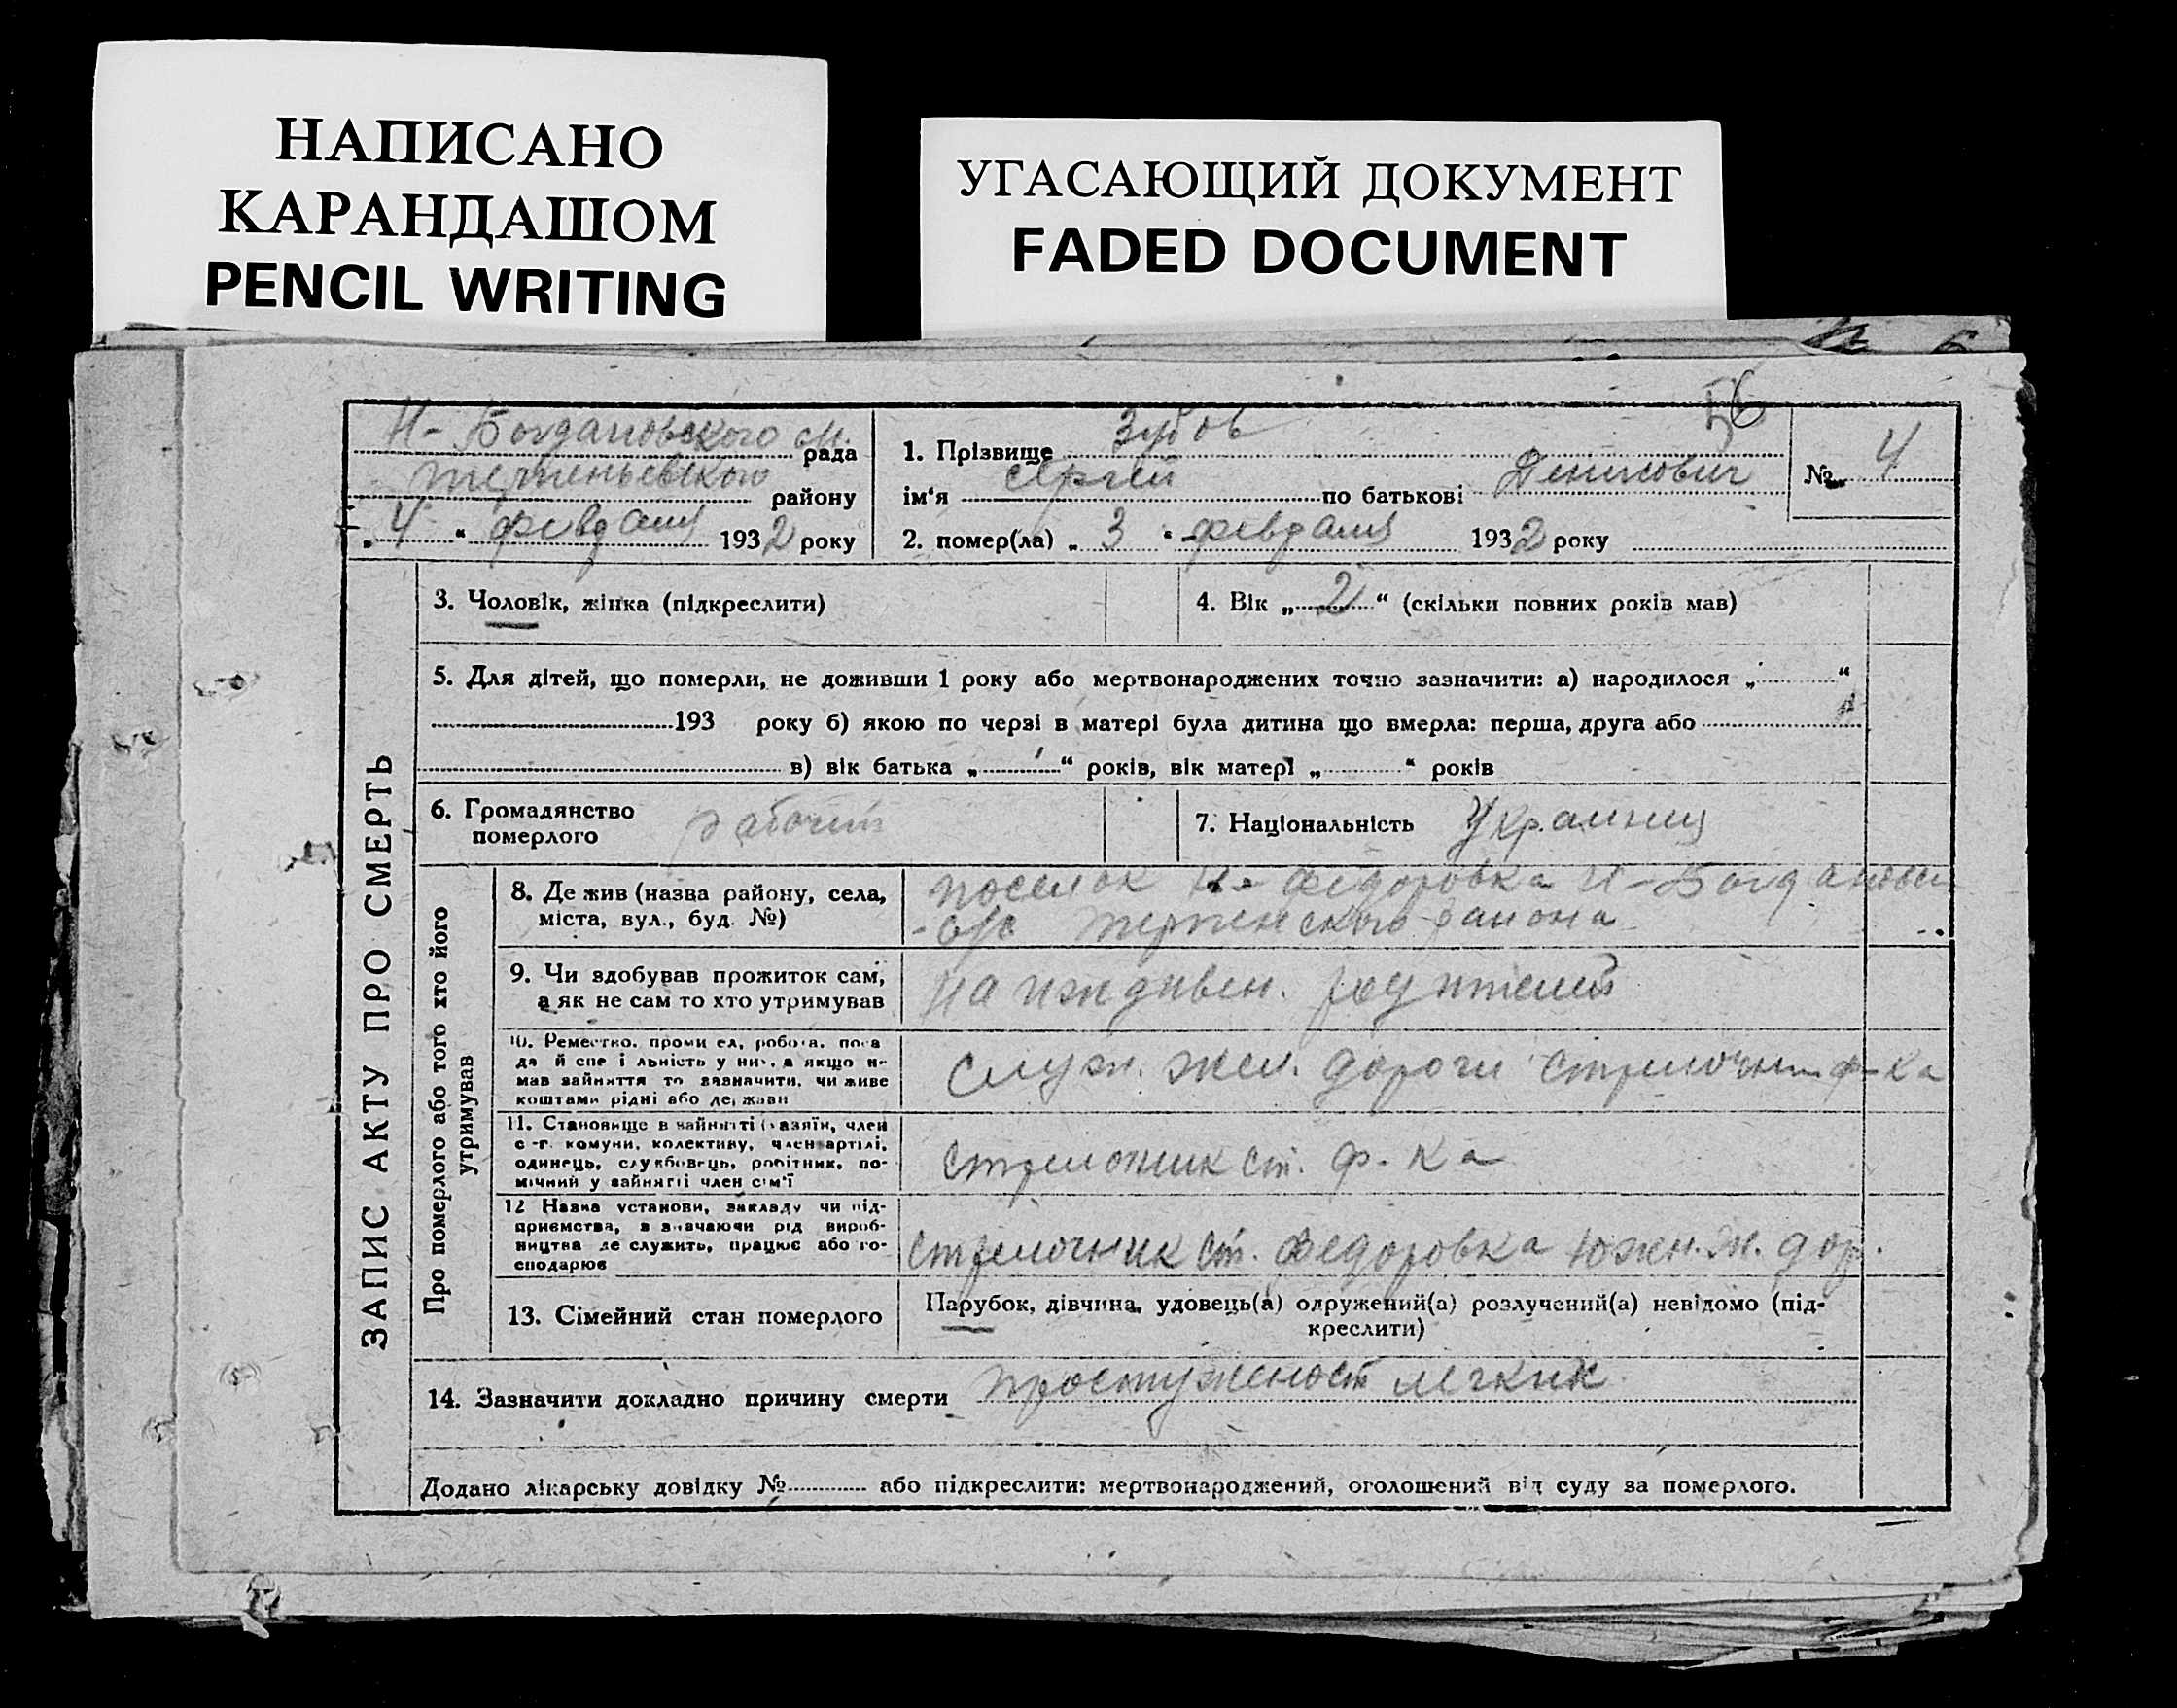 НАПИСАНО
КАРАНДАШОМ
PENCIL WRITING
УГАСАЮЩИЙ ДОКУМЕНТ
FADED DOCUMENT
56
Н-Богдановского с/п.
рада
района
району
„ 4 “ февраля 1932 року
1. Прізвище Зубов
ім'я Сергей по батькові Денисович
2. помер(ла) „ 3 “ февраля 1932 року
№ 4
ЗАПИС АКТУ ПРО СМЕРТЬ
3. Чоловік, жінка (підкреслити)
4. Вік „ 2 “ (скільки повних років мав)
5. Для дітей, що померли, не доживши 1 року або мертвонароджених точно зазначити: а) народилося „ “
193 року б) якою по черзі в матері була дитина що вмерла: перша, друга або
в) вік батька „ “ років, вік матері „ “ років
6. Громадянство
померлого
рабочий
7. Національність Украинец
Про померлого або того хто його
утримував
8. Де жив (назва району, села,
міста, вул., буд. №)
поселок Н-Федоровка Н-Богдановск
-ого района
9. Чи здобував прожиток сам,
а як не сам то хто утримував
на иждивен. родителей
10. Ремество, промисел, робота, поса
да й спеціальність у них, а якщо не
мав зайняття то зазначити, чи живе
коштами рідні або держави
Служ. жел. дороги стрелочник ф-ка
11. Становище в зайнятті (хазяїн, член
с-г. комуни, колективу, член артілі,
одинець, службовець, робітник, по-
мічний у зайнятті член сім'ї
стрелочник ст. ф-ка
12 Назва установи, закладу чи під-
приємства, зазначаючи рід вироб-
ництва де служить, працює або го-
сподарює
стрелочник ст. Федоровка Южн. ж. дор.
13. Сімейний стан померлого
Парубок, дівчина, удовець(а) одружений(а) розлучений(а) невідомо (під-
креслити)
14. Зазначити докладно причину смерти простуженост легких
Додано лікарську довідку № або підкреслити: мертвонароджений, оголошений від суду за померлого.